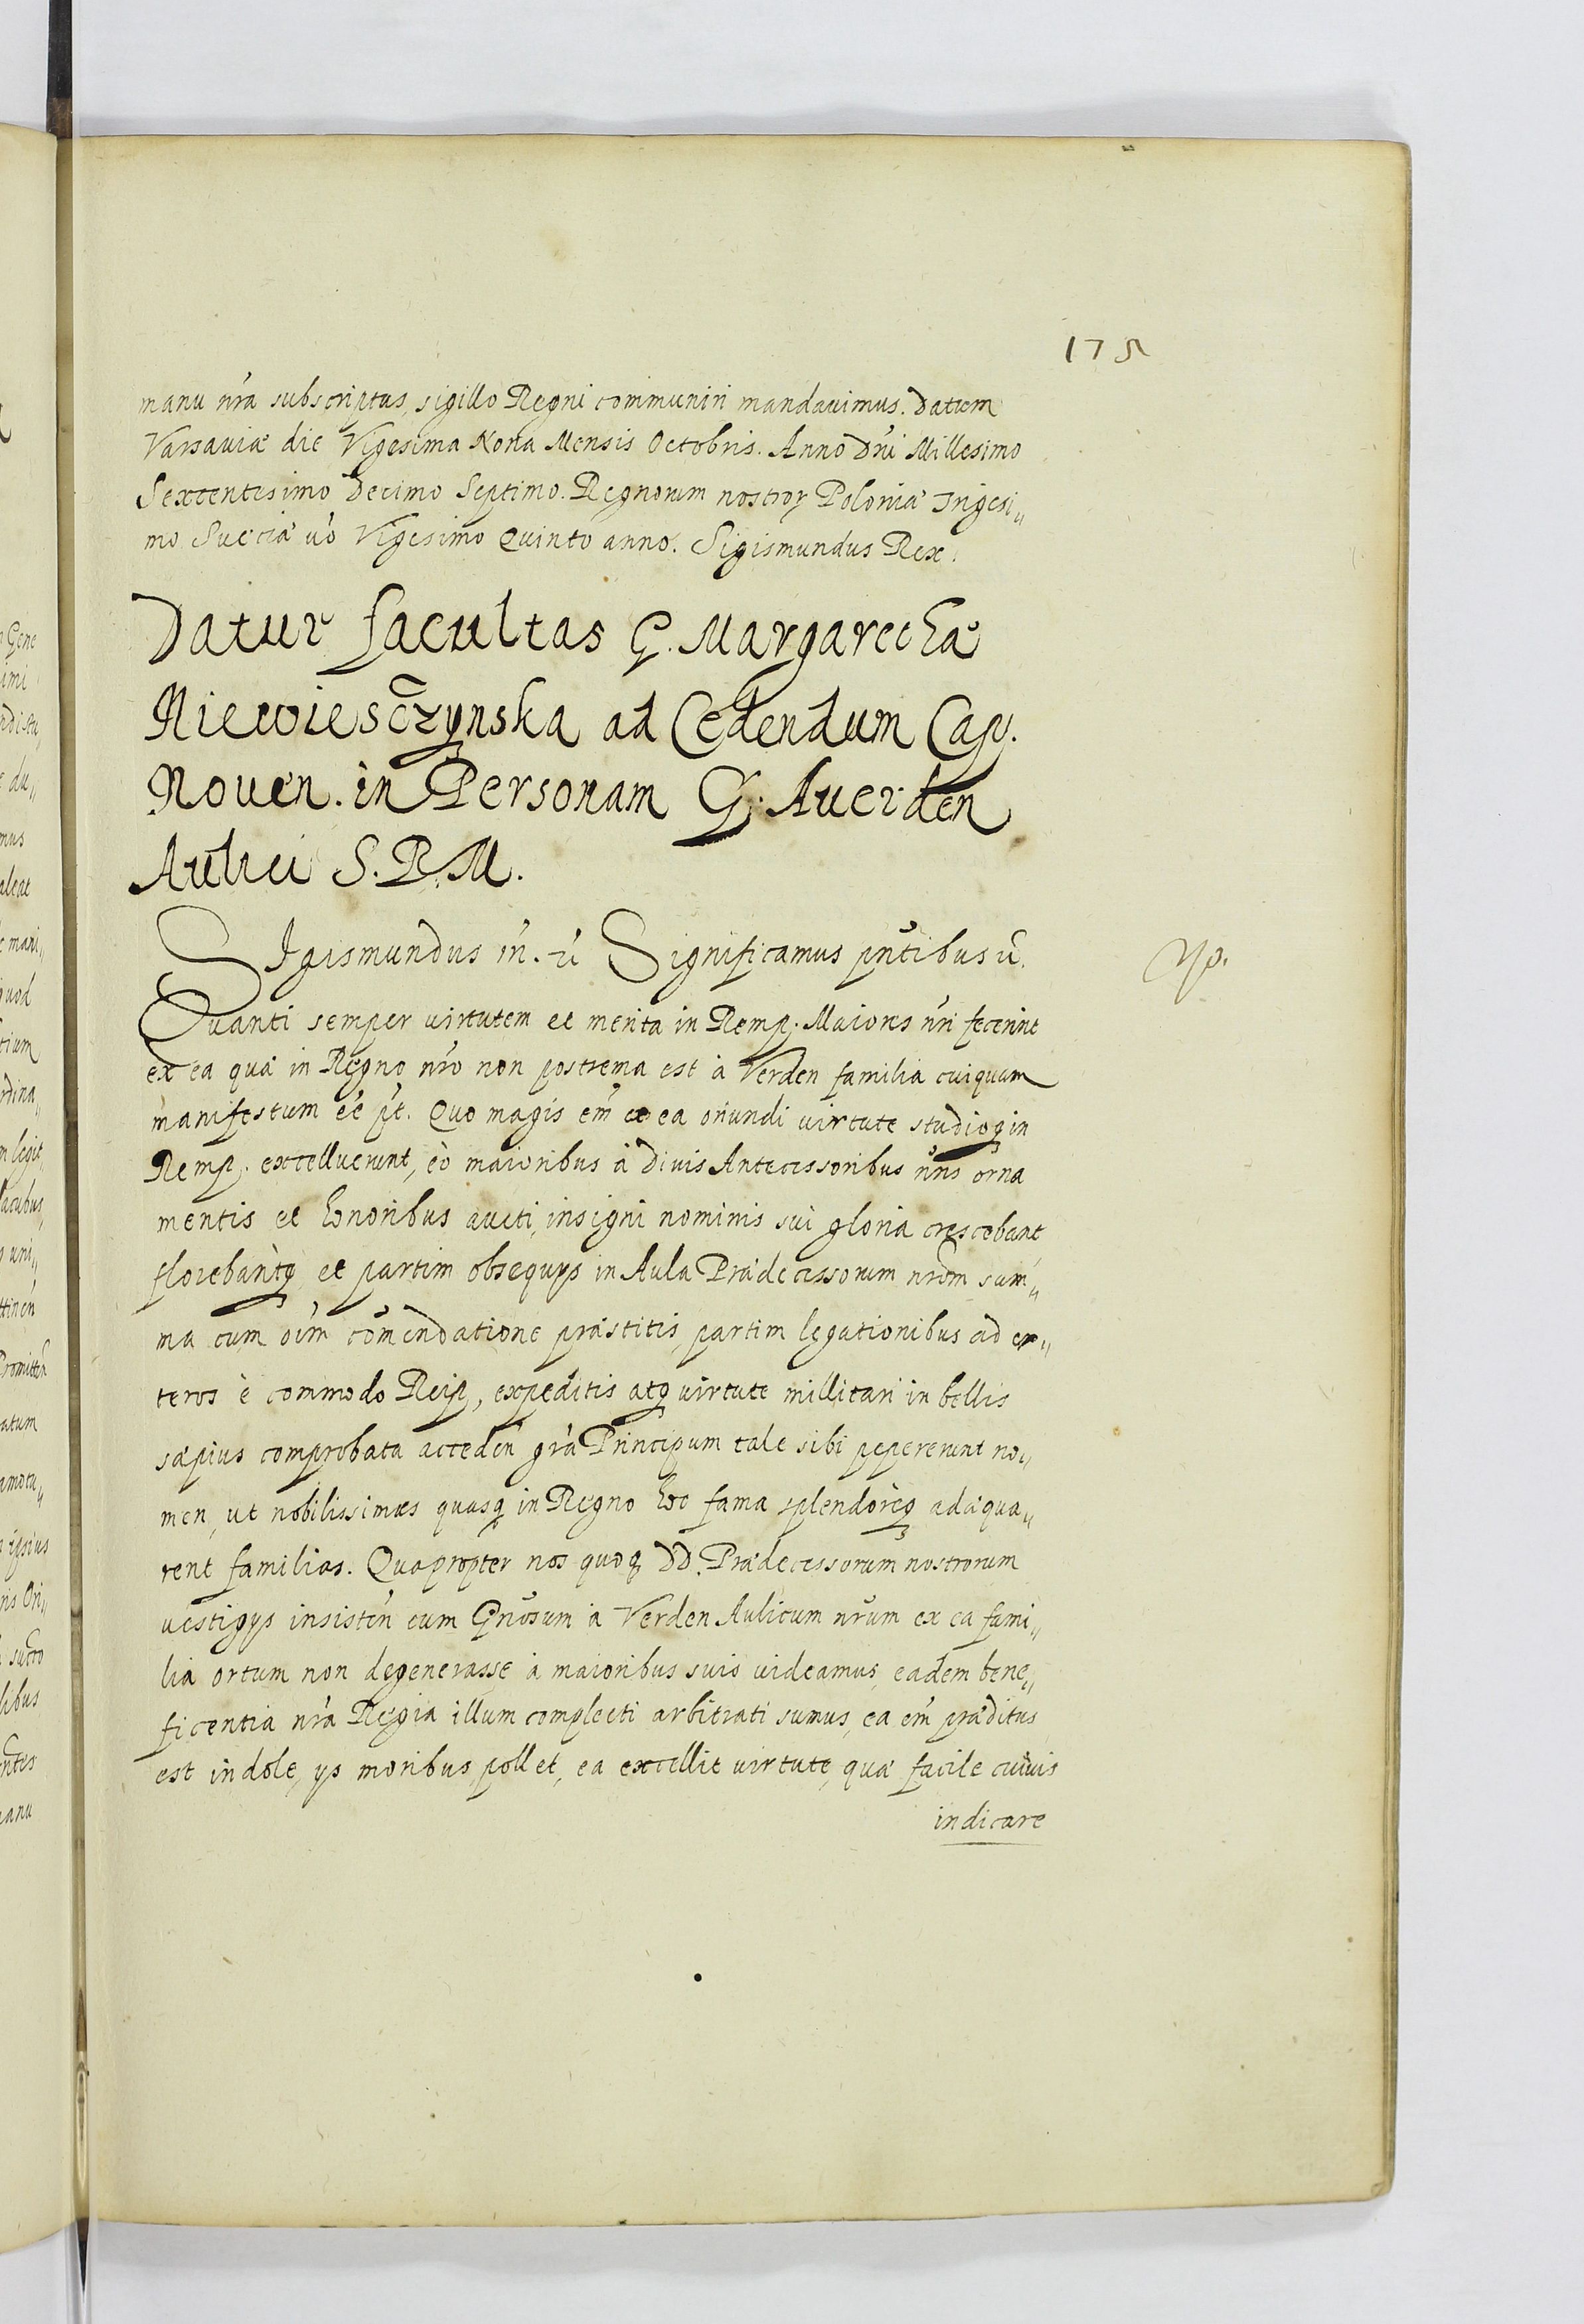 175
manu nr̃a subscriptas, sigillo Regni communiri mandauimus. Datum
Varsauiæ die Vigesima Nona Mensis Octobris. Anno Dñi Millesimo
Sexcentesimo Decimo Septimo. Regnorum nostroꝝ Poloniæ Trigesi„
mo Sueciæ uó Vigesimo Quinto anno. Sigismundus Rex.
Datur facultas G. Margarethæ
Niewiesczynska ad Cedendum Cap.
Nouen. in Personam G. Auerden
Aulici S. R. M.
SIgismundus Significamus pñtibus
Np.
Quanti semper virtutem et merita in Remp. Maiores nr̃i fecerint
ex ea quæ in Regno nr̃o non postrema est à Verden familia cuiquam
manifestum eẽ pt̃. Quo magis em̃ ex ea oriundi virtute studioq in
Remp. excelluerunt, eò maioribus à diuis Antecessoribus nr̃is orna
mentis et honoribus aucti, insigni nominis sui gloria crescebant
florebantq et partim obsequijs in Aula Prædecessorum nrõm sum„
ma cum oĩm com̃endatione præstitis, partim legationibus ad ex„
teros è commodo Reip, expeditis atq virtute millitari in bellis
sæpius comprobata acceden̄ gr̃a Principum tale sibi pepererunt no„
men, ut nobilissimas quasq in Regno hoc fama splendoreq adæqua„
rent familias. Quapropter nos quoq DD. Prædecessorum nostrorum
uestigijs insisteñ cum Gñosum à Verden Aulicum nrũm ex ea fami„
lia ortum non degenerasse à maioribus suis uideamus, eadem bene„
ficentia nr̃a Regia illum complecti arbitrati sumus, ea em̃ præditus
est indole, ijs moribus pollet, ea excellit virtute, quæ facile cuiuis
indicare